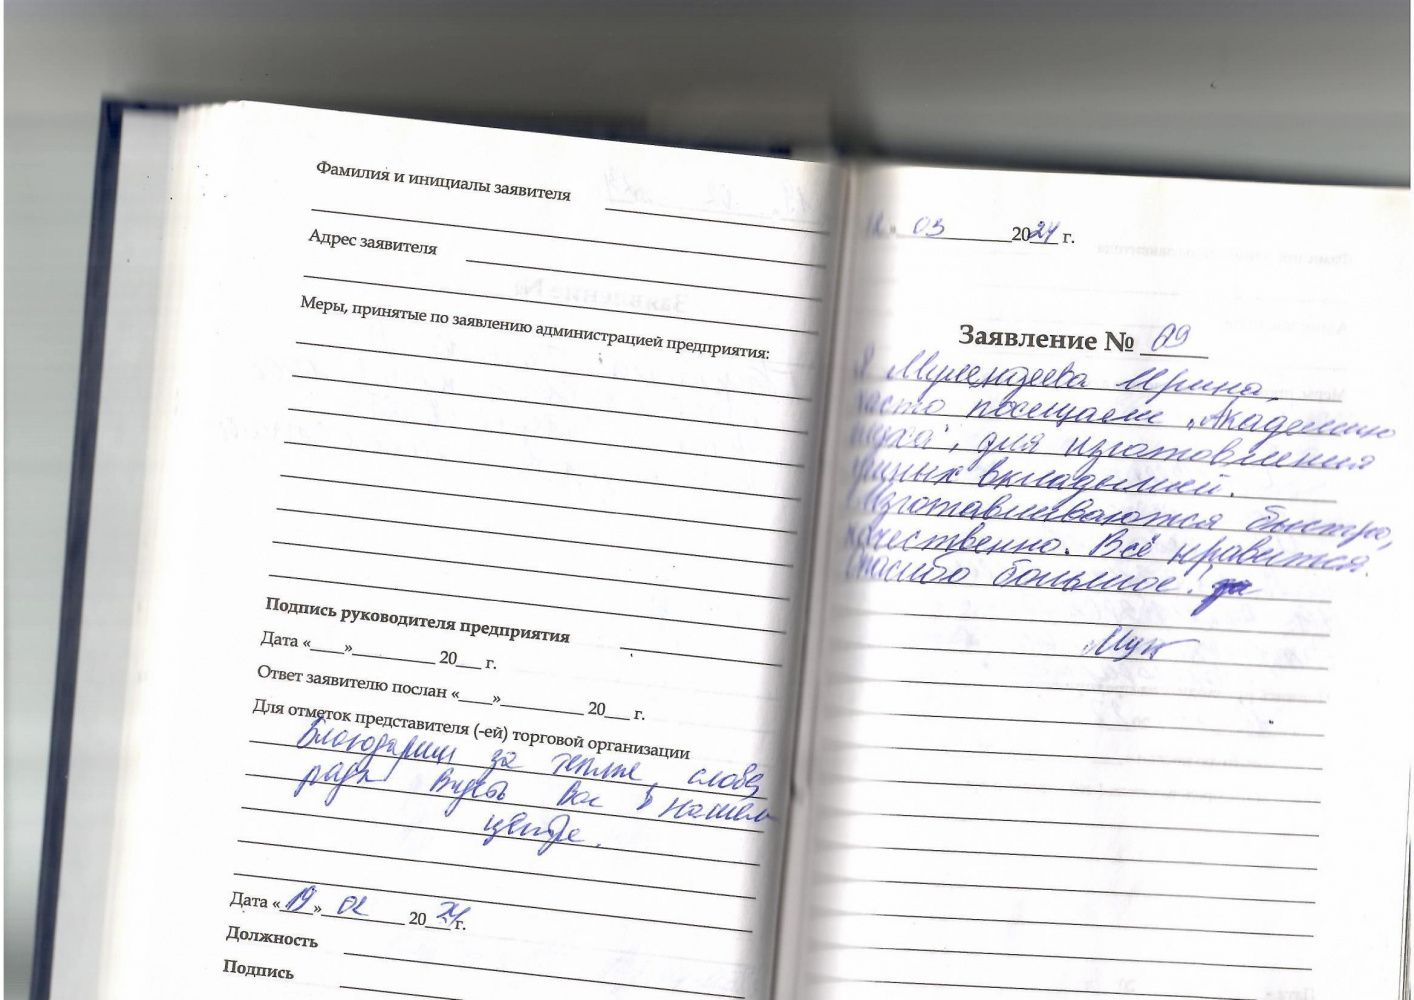 Фамилия и инициалы заявителя
Адрес заявителя
Меры, принятые по заявлению администрацией предприятия:
Подпись руководителя предприятия
Дата «____»__________ 20___ г.
Ответ заявителю послан «____»__________ 20___ г.
Для отметок представителя (-ей) торговой организации
Благодарим за теплые слова,
рады видеть Вас в нашем
центре.
Дата «19» 02 2024 г.
Должность
Подпись
12 » 03 2024 г.
Заявление № 69
Я Ирина,
часто посещаем „Академию
слуха", для изготовления
ушных вкладышей.
Изготавливаются быстро,
качественно. Всё нравится.
Спасибо большое!